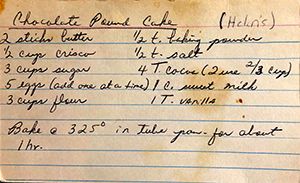 Chocolate Pound Cake (Helen's)
2 sticks butter 1/2 t. baking powder
1/2 cup crisco 1/2 t. salt
3 cups sugar 4 T. cocoa (I use 2/3 cup)
5 eggs (add one at a time) 1 C. sweet milk
3 cups flour 1 T. vanilla
Bake @ 325° in tube pan for about
1 hr.